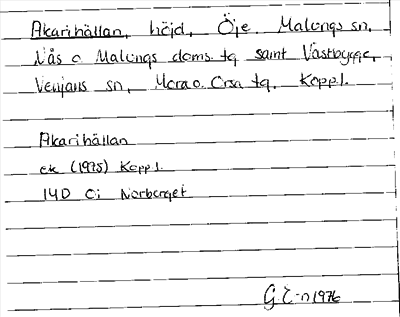 Åkarihällan, höjd, Öje, Malungs sn,
Nås o Malungs doms. tg samt Västbygge,
Venjans sn, Mora o. Orsa tg, Koppl.
Åkarihällan
ek (1975) Koppl.
14D 0i Norberget
G. E-n 1976